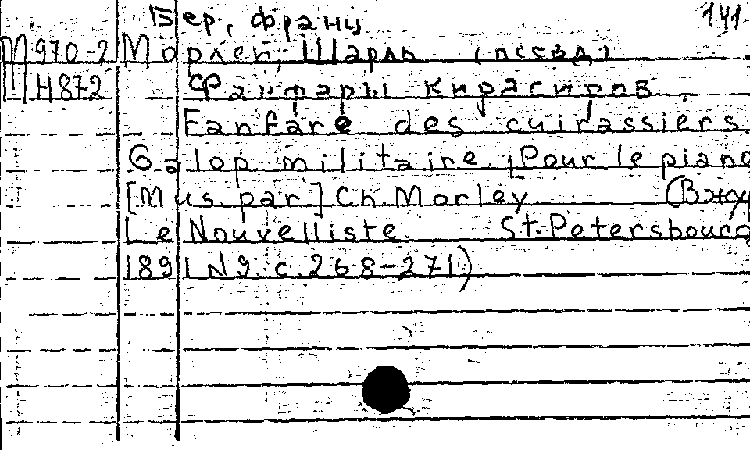 Бер, Франц 141
М970-2 Морлей, Шарль (псевд)
Н872 Фанфары кирасиров.
Fanfare des cuirassiers.
Galop militaire. Pour le piano
[Mus par] Ch. Morley (В жур
Le Nouvelliste. St.-Petersbourg
1891 N9. с. 268-271)